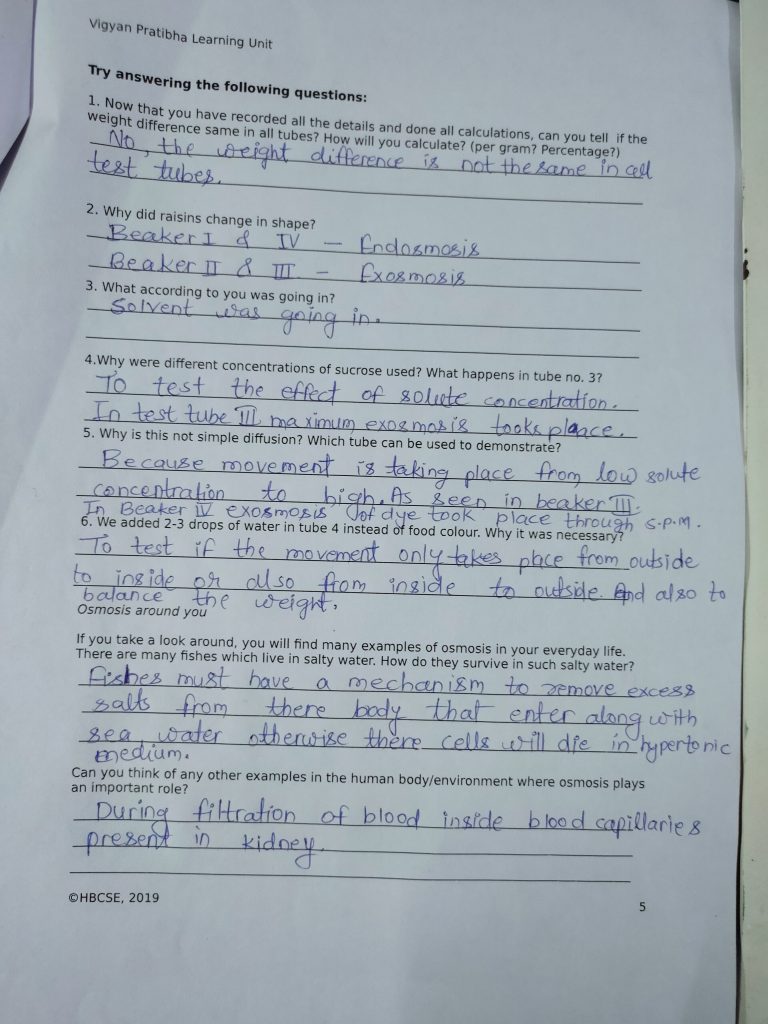 Vigyan Pratibha Learning Unit
Try answering the following questions:
1. Now that you have recorded all the details and done all calculations, can you tell if the
weight difference same in all tubes? How will you calculate? (per gram? Percentage?)
No, the weight difference is not the same in all
test tubes.
2. Why did raisins change in shape?
Beaker I & IV - Endosmosis
Beaker II & III - Exosmosis
3. What according to you was going in?
Solvent was going in.
4.Why were different concentrations of sucrose used? What happens in tube no. 3?
To test the effect of solute concentration.
In test tube III maximum exosmosis tooks place.
5. Why is this not simple diffusion? Which tube can be used to demonstrate?
Because movement is taking place from low solute
concentration to high. As seen in beaker III.
In Beaker IV exosmosis of dye took place through S.P.M.
6. We added 2-3 drops of water in tube 4 instead of food colour. Why it was necessary?
To test if the movement only takes place from outside
to inside or also from inside to outside. And also to
balance the weight.
Osmosis around you
If you take a look around, you will find many examples of osmosis in your everyday life.
There are many fishes which live in salty water. How do they survive in such salty water?
Fishes must have a mechanism to remove excess
salts from there body that enter along with
sea water otherwise there cells will die in hypertonic
medium.
Can you think of any other examples in the human body/environment where osmosis plays
an important role?
During filtration of blood inside blood capillaries
present in kidney.
©HBCSE, 2019
5